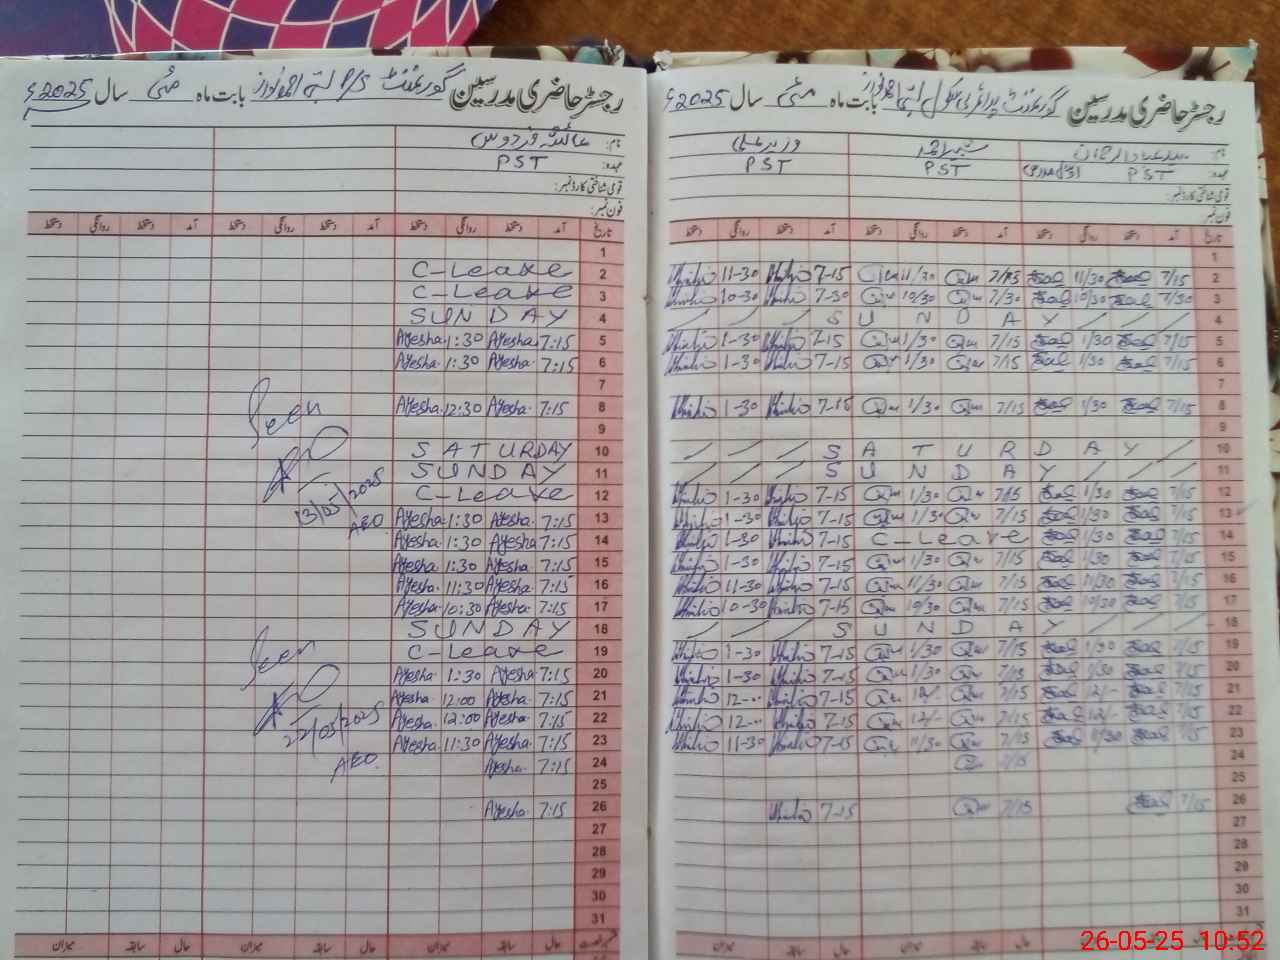 رجسٹر حاضری مدرسین گورنمنٹ P/S بستی احمد نواز بابت ماہ مئی سال 2025ء
نام: عائشہ فردوس
عہدہ: PST
قومی شناختی کارڈ نمبر:
فون نمبر:
تاریخ آمد دستخط روانگی دستخط آمد دستخط روانگی دستخط آمد دستخط روانگی دستخط
1
2 C-Leave
3 C-Leave
4 SUNDAY
5 7:15 Ayesha 1:30 Ayesha
6 7:15 Ayesha 1:30 Ayesha
7
8 7:15 Ayesha 12:30 Ayesha
9
10 SATURDAY
11 SUNDAY
12 C-Leave
13 7:15 Ayesha 1:30 Ayesha
14 7:15 Ayesha 1:30 Ayesha
15 7:15 Ayesha 1:30 Ayesha
16 7:15 Ayesha 11:30 Ayesha
17 7:15 Ayesha 10:30 Ayesha
18 SUNDAY
19 C-Leave
20 7:15 Ayesha 1:30 Ayesha
21 7:15 Ayesha 12:00 Ayesha
22 7:15 Ayesha 12:00 Ayesha
23 7:15 Ayesha 11:30 Ayesha
24 7:15 Ayesha
25
26 7:15 Ayesha
27
28
29
30
31
حال سابقہ میزان حال سابقہ میزان حال سابقہ میزان
Seen
13/05/2025
AEO
Seen
22/05/2025
AEO
رجسٹر حاضری مدرسین گورنمنٹ پرائمری سکول بستی احمد نواز بابت ماہ مئی سال 2025ء
نام: شبیر احمد وزیر علی
عہدہ: PST PST PST
قومی شناختی کارڈ نمبر:
فون نمبر:
تاریخ آمد دستخط روانگی دستخط آمد دستخط روانگی دستخط آمد دستخط روانگی دستخط
1
2 7/15 11/30 7/15 11/30 7-15 11-30
3 7/30 10/30 7/30 10/30 7-30 10-30
4 SUNDAY
5 7/15 1/30 7/15 1/30 7-15 1-30
6 7/15 1/30 7/15 1/30 7-15 1-30
7
8 7/15 1/30 7/15 1/30 7-15 1-30
9
10 SATURDAY
11 SUNDAY
12 7/15 1/30 7/15 1/30 7-15 1-30
13 7/15 1/30 7/15 1/30 7-15 1-30
14 7/15 1/30 C-Leave 7-15 1-30
15 7/15 1/30 7/15 1/30 7-15 1-30
16 7/15 11/30 7/15 11/30 7-15 11-30
17 7/15 10/30 7/15 10/30 7-15 10-30
18 SUNDAY
19 7/15 1/30 7/15 1/30 7-15 1-30
20 7/15 1/30 7/15 1/30 7-15 1-30
21 7/15 12/- 7/15 12/- 7-15 12-..
22 7/15 12/- 7/15 12/- 7-15 12-..
23 7/15 11/30 7/15 11/30 7-15 11-30
24 7/15
25
26 7/15 7/15 7-15
27
28
29
30
31
حال سابقہ میزان حال سابقہ میزان حال سابقہ میزان
26-05-25 10:52